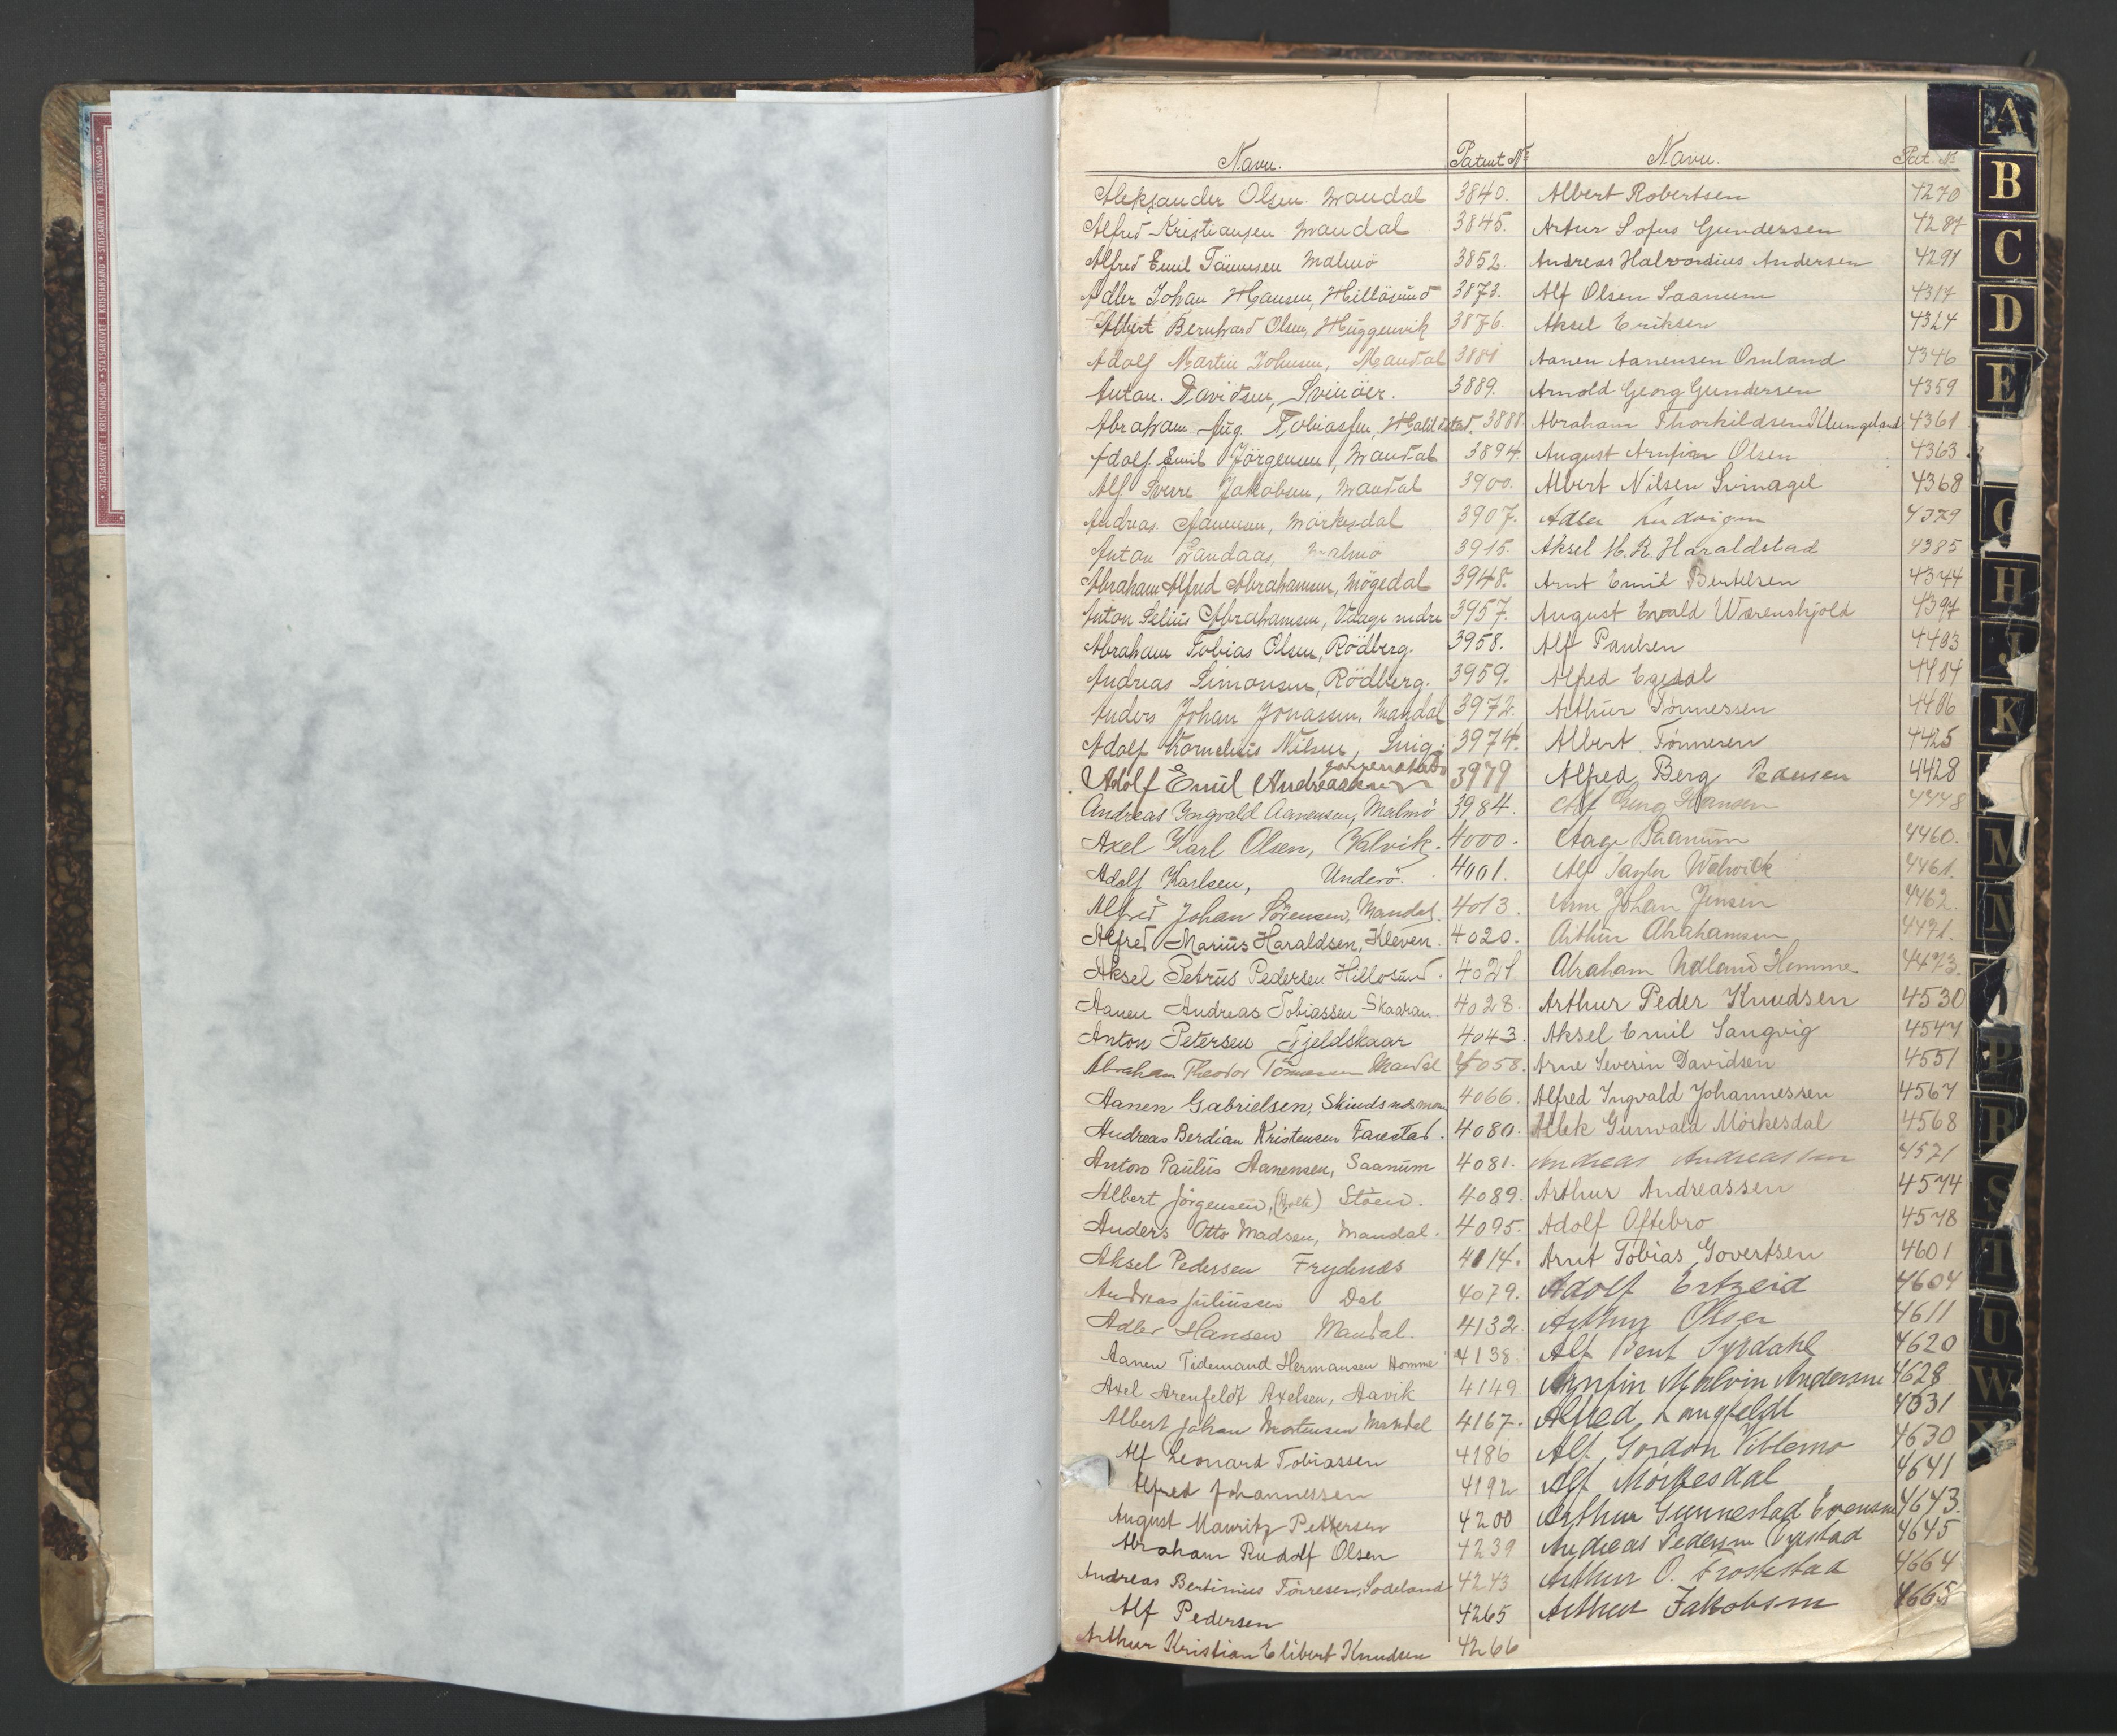 STATSARKIVET I KRISTIANSAND • STATSARKIVET I KRISTIANSAND • STATSARKIVET I KRISTIANSAND
Navn. Patent №
Aleksander Olsen Mandal 3840.
Alfred Kristiansen Mandal 3845.
Alfred Emil Tönnesen Malmö 3852.
Adler Johan Hansen, Hillösund 3873.
Albert Bernhard Olsen, Huggenvik 3876.
Adolf Martin Johnsen, Mandal 3881
Anton. Davidsen, Svinöer. 3889.
Abraham Aug. Tobiassen, 3888
Adolf. Emil Jörgensen, Mandal 3894.
Alf Sverre Jakobsen, Mandal 3900.
Andreas Aanensen, Mörkesdal 3907.
Anton Landaas, Malmö 3915.
Abraham Alfred Abrahamsen, Mögedal 3948.
Anton Selius Abrahamsen, Udage nedre 3957.
Abraham Tobias Olsen, Rödberg. 3958.
Andreas Simonsen, Rödberg. 3959.
Anders Johan Jonassen, Mandal 3972.
Adolf Kornelius Nilsen, Snig. 3974.
Adolf Emil Andreassen 3979
Andreas Yngvald Aanensen, Malmö 3984.
Axel Karl Olsen, Valvik. 4000.
Adolf Karlsen, Underö. 4001.
Alfred Johan Sörensen, Mandal. 4013.
Alfred Marius Haraldsen, Kleven. 4020.
Aksel Petrus Pedersen Hillosund. 4021.
Aanen Andreas Tobiassen Skaaran. 4028.
Anton Petersen Fjeldskaar 4043.
Abraham Theodor Tönnessen Mandal 4058.
Aanen Gabrielsen, 4066.
Andreas Berdian Kristensen Farestad. 4080.
Anton Paulus Aanensen, Saanum 4081.
Albert Jörgensen, (Holte) Stöen. 4089.
Anders Otto Madsen, Mandal. 4095.
Aksel Pedersen Frydenes 4114.
Andreas Juliussen Dal 4079.
Adler Hansen Mandal. 4132.
Aanen Tidemand Hermansen Homme 4138.
Axel Arenfeldt Axelsen, Aavik 4149
Albert Johan Mortensen Mandal 4167.
Alf Leonard Tobiassen 4186
Alfred Johannessen 4192
August Mauritz Pettersen 4200
Abraham Rudolf Olsen 4239
Andreas Bertinius Törresen, Sodeland 4243
Alf Pedersen 4265
Arthur Kristian Elibert Knudsen 4266
Navn. Pat. №
Albert Robertsen 4270
Artur Sofus Gundersen 4287
Andreas Halvordius Andersen 4291
Alf Olsen Saanum 4317
Aksel Eriksen 4324
Aanen Aanensen Omland 4346
Arnold Georg Gundersen 4359
Abraham Thorkildsen Klungeland 4361
August Arnfinn Olsen 4363.
Albert Nilsen Svinagel 4368
Adler Ludvigsen 4379
Aksel H. R. Haraldstad 4385
Arnt Emil Bertelsen 4344
August Evald Wærenskjold 4397
Alf Paulsen 4403
Alfred Egedal 4404
Arthur Tönnessen 4406
Albert Tönnesen 4425
Alfred Berg Pedersen 4428
Alf Georg Hansen 4448
Aage Saanum 4460.
Alf Taylor Walwick 4461.
Arne Johan Jensen 4462.
Arthur Abrahamsen 4471.
Abraham Udland Homme 4473.
Arthur Peder Knudsen 4530
Aksel Emil Sangvig 4547
Arne Severin Davidsen 4551
Alfred Ingvald Johannessen 4567
Allek Gunvald Mörkesdal 4568
Andreas Andreassen 4571
Arthur Andreassen 4574
Adolf Oftebro 4578
Arnt Tobias Govertsen 4601
Adolf Ertzeid 4604
Arthur Olsen 4611
Alf Bent Syrdahl 4620
Arnfin Malvin Andersen 4628
Alfred Langfeldt 4631
Alf Gordon Villemo 4630
Alf Mörkesdal 4641
Arthur Gunnestad Evensen 4643.
Andreas Pedersen 4645
Arthur O. Frostestad 4664
Arthur Jakobsen 4665
A
B
C
D
E
G
H
J
K
M
N
O
P
R
S
T
U
W